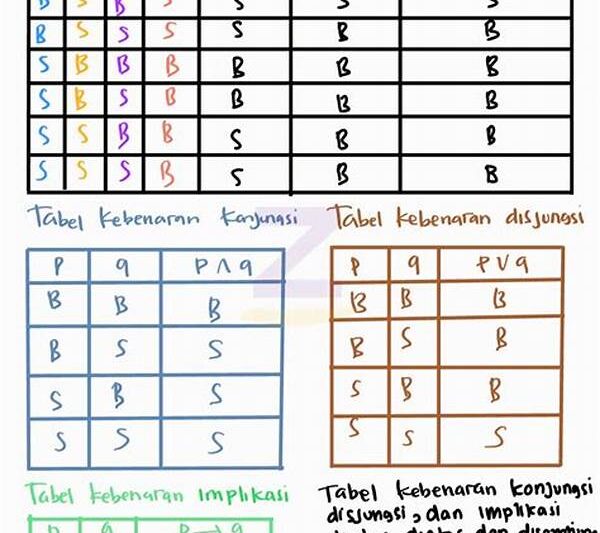 B S B S S S S
B S S S S B B
S B B B B B B
S B S B B B B
S S B B S B B
S S S B S B B
Tabel kebenaran konjungsi
P q P ∧ q
B B B
B S S
S B S
S S S
Tabel kebenaran disjungsi
P q P ∨ q
B B B
B S B
S B B
S S S
Tabel kebenaran implikasi
P q P → q
Tabel kebenaran konjungsi
disjungsi, dan implikasi